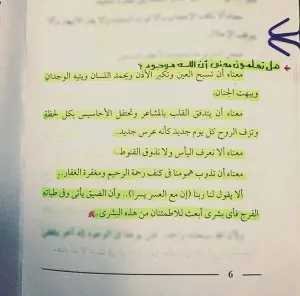 هل تعلمون معنى أن الله موجود؟
معناه أن تسبح العين وتكبر الأذن ويحمد اللسان ويتيه الوجدان
ويبهت الجنان.
معناه أن يتدفق القلب بالمشاعر وتحتفل الأحاسيس بكل لحظة
وتزف الروح كل يوم جديد كأنه عرس جديد..
معناه ألا نعرف اليأس ولا نذوق القنوط.
معناه أن تذوب همومنا فى كنف رحمة الرحيم ومغفرة الغفار..
ألا يقول لنا ربنا (إن مع العسر يسرا).. وأن الضيق يأتى وفى طياته
الفرج فأى بشرى أبعث للاطمئنان من هذه البشرى.
6